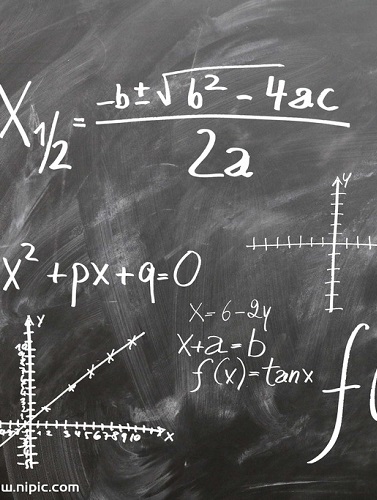 X₁/₂ = -b ± √b² - 4ac / 2a
y
x² + px + q = 0
x = 6 - 2y
x + a = b
f(x) = tanx
f(
y
x
1 2 3 4 5 6 7 8 9 10
w.nipic.com